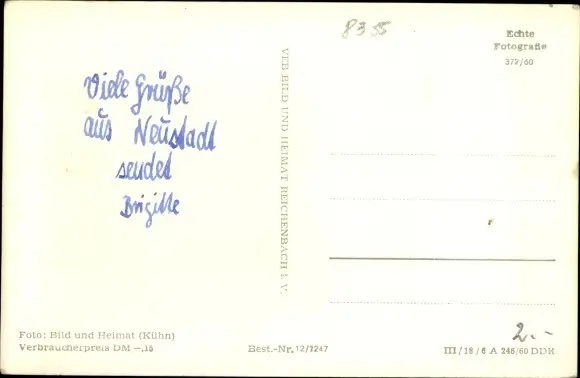 8355
Echte
Fotografie
372/60
Viele Grüße
aus Neustadt
sendet
Brigitte
VEB BILD UND HEIMAT REICHENBACH i. V.
Foto: Bild und Heimat (Kühn)
Verbraucherpreis DM –,15
Best.-Nr. 12/1247
2.-
III/18/6 A 246/60 DDR